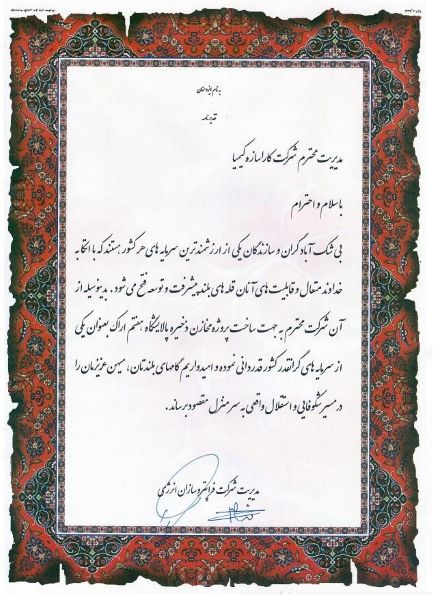 به نام ایزد منان
تقدیرنامه
مدیریت محترم شرکت کاراسازه کیمیا
با سلام و احترام
بی شک آبادگران و سازندگان یکی از ارزشمندترین سرمایه های هر کشور هستند که با اتکا به
خداوند متعال و قابلیت های آنان قله های بلند پیشرفت و توسعه فتح می شود . بدینوسیله از
آن شرکت محترم به جهت ساخت پروژه مخازن ذخیره پالایشگاه هفتم اراک بعنوان یکی
از سرمایه های گرانقدر کشور قدردانی نموده و امیدواریم گامهای بلندتان، میهن عزیزمان را
در مسیر شکوفایی و استقلال واقعی به سر منزل مقصود برساند .
مدیریت شرکت فراپترو سازان انرژی